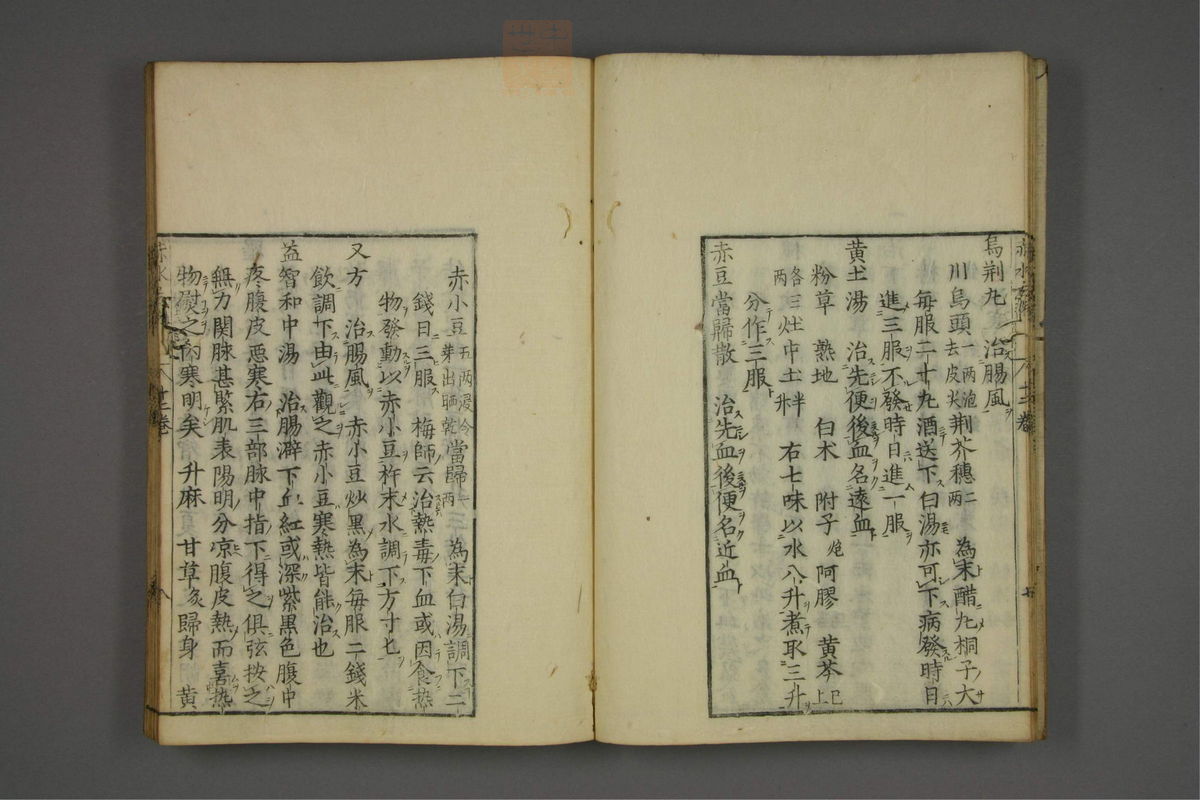 烏荊丸　治腸風
川烏頭一两泡去皮尖荆芥穗二两為末醋丸桐子大
每服二十丸酒送下白湯亦可下病發時日
進三服不發時日進一服
黃土湯　治先便後血名遠血
粉草　熟地　白朮　附子炮阿膠　黃芩已上
各三两灶中土半升　右七味以水八升煮取三升
分作三服
赤豆當歸散　治先血後便名近血
赤小豆五两浸令芽出晒乾當歸一两為末白湯調下二
錢日三服　梅師云治熱毒下血或因食热
物發動以赤小豆杵末水調下方寸匕
又方　治腸風　赤小豆炒黑為末每服二錢米
飲調下由此觀之赤小豆寒熱皆能治也
益智和中湯　治腸澼下血紅或深紫黑色腹中
疼腹皮惡寒右三部脉中指下得之俱弦按之
無力関脉甚緊肌表陽明分凉腹皮熱而喜热
物熨之内寒明矣　升麻　甘草炙歸身　黃